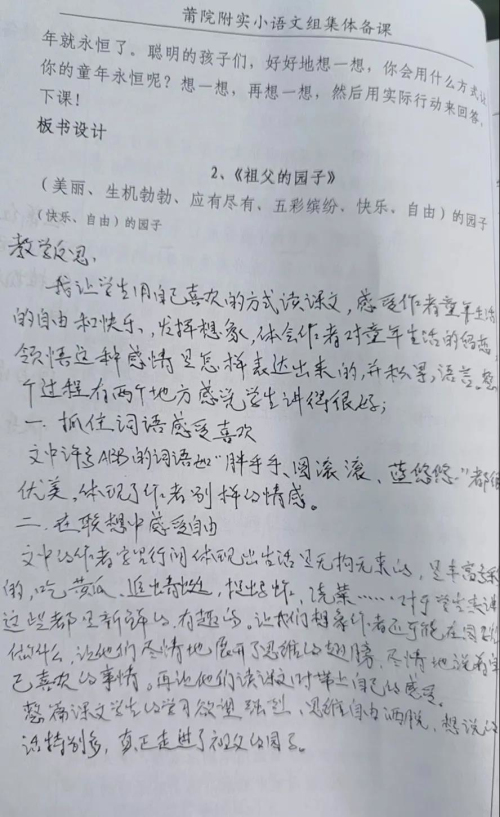 莆院附实小语文组集体备课
年就永恒了。聪明的孩子们，好好地想一想，你会用什么方式让
你的童年永恒呢？想一想，再想一想，然后用实际行动来回答，
下课！
板书设计
2、《祖父的园子》
（美丽、生机勃勃、应有尽有、五彩缤纷、快乐、自由）的园子
（快乐、自由）的园子
教学反思：
我让学生用自己喜欢的方式读课文，感受作者童年生活
的自由和快乐，发挥想象，体会作者对童年生活的
领悟这种感情是怎样表达出来的，并积累语言。整
个过程有两个地方感觉学生讲得很好；
一．抓住词语感受喜欢
文中许多ABB的词语如“胖乎乎、圆滚滚、蓝悠悠”都很
优美，体现了作者别样的情感。
二．在联想中感受自由
文中的作者字里行间体现出生活是无拘无束的，是丰富多彩
的，吃黄瓜、追蜻蜓、捉蚂蚱、浇菜……对于学生来讲
这些都是新鲜的，有趣的。让我们想象作者还可能在园子里
做什么，让他们尽情地展开了思维的翅膀，尽情地说着自
己喜欢的事情。再让他们读课文时带上自己的感受。
整篇课文学生的学习欲望强烈，思维自由洒脱，想说的
话特别多，真正走进了祖父的园子。